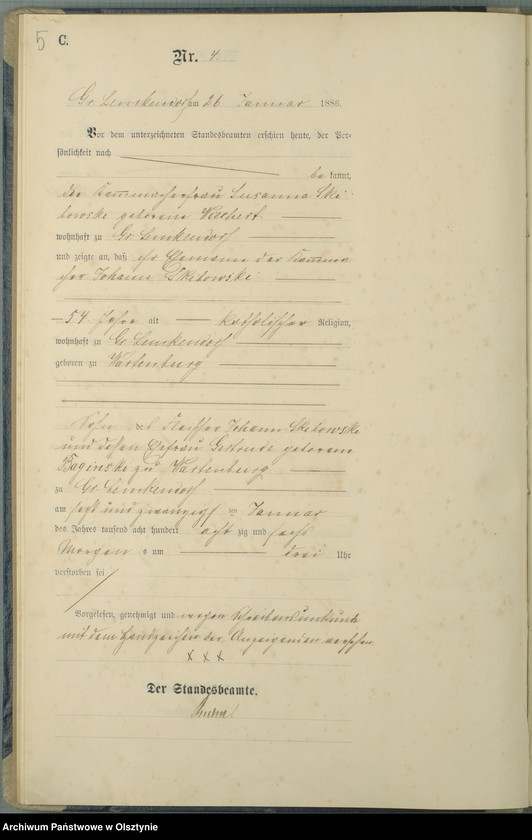 5 C.
Nr. 4.
Gr. Lemkendorf am 26 Januar 1886.
Vor dem unterzeichneten Standesbeamten erschien heute, der Per-
sönlichkeit nach
be kannt,
die
frau Susanna Ski-
towske geborene
wohnhaft zu Gr. Lemkendorf
und zeigte an, daß ihr Ehemann der
Johann Skitowski
54 Jahre alt katholischer Religion,
wohnhaft zu Gr. Lemkendorf
geboren zu Wartenburg
Sohn des Johann Skitowske
und dessen Ehefrau Gertrude geborene
Baginske zu Wartenburg
zu Gr. Lemkendorf
am sechs und zwanzigst en Januar
des Jahres tausend acht hundert acht zig und sechs
Morgen s um drei Uhr
verstorben sei
Vorgelesen, genehmigt und wegen Schreibensunkunde
mit dem Handzeichen der versehen.
x x x
Der Standesbeamte.
Archiwum Państwowe w Olsztynie